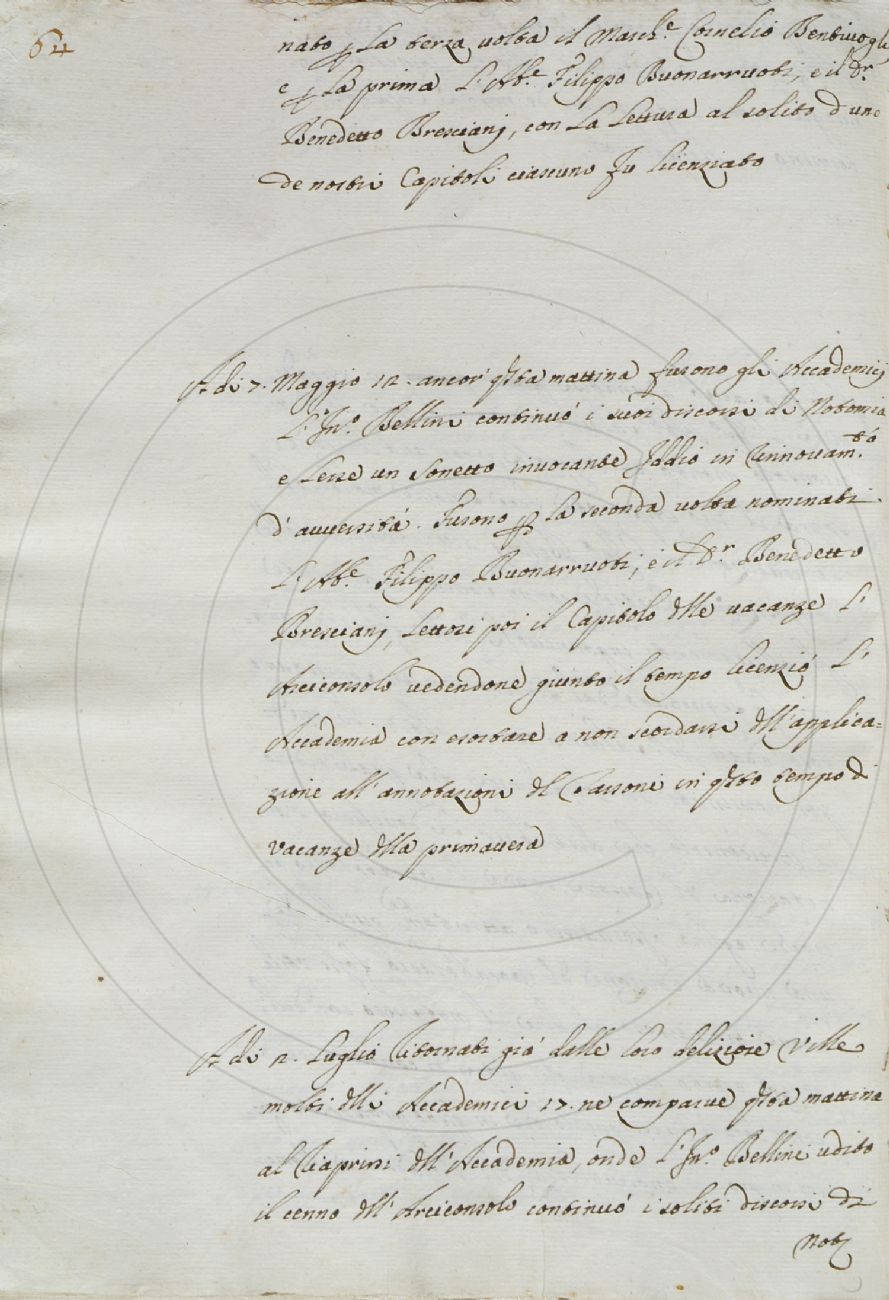 64
nato p La terza volta il March.e Cornelio Bentivogli
e p La prima L'Ab.e Filippo Buonarruoti, e il Dr.
Benedetto Brescianj, con La Lettura al solito d'uno
de nostri Capitoli ciascuno fu licenziato
A di 7. Maggio 12. ancor' qsta mattina furono gli Accademicj
L'Inn.o Bellini continuó i suoi discorsi di Notomia
e Lesse un sonetto invocante Iddio in rinnovam.to
d'avversitá. Furono p La seconda volta nominati
L'Ab.e Filippo Buonarruoti, e il Dr. Benedetto
Brescianj, Lettosi poi il Capitolo dlle vacanze L'
Arciconsolo vedendone giunto il tempo licenzió L'
Accademia con esortare a non scordarsi dll'applica=
zione all'annotazioni dl Tassoni in qsto tempo di
vacanze dlla primavera
A di 2. Luglio ritornati giá dalle loro deliziose Ville
molti dlli Accademici 17. ne comparve qsta mattina
al riaprirsi dll'Accademia, onde L'Inn.o Bellini udito
il cenno dll'Arciconsolo continuó i soliti discorsi di